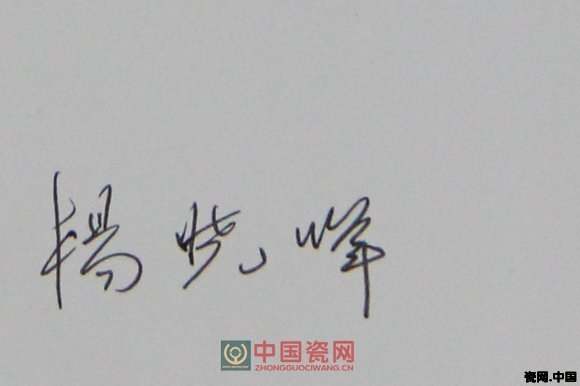 楊晓峰
中国瓷网
ZHONGGUOCIWANG.CN
瓷网.中国